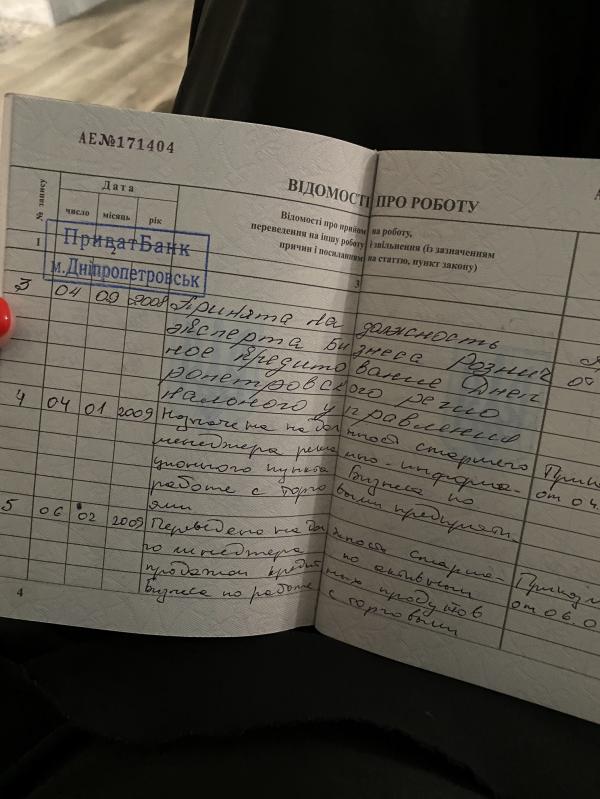 АЕ№171404
ВІДОМОСТІ ПРО РОБОТУ
№ запису
Дата
число місяць рік
Відомості про прийом на роботу,
переведення на іншу роботу і звільнення (із зазначенням
причин і посиланням на статтю, пункт закону)
1 2 3
ПриватБанк
м.Дніпропетровськ
3 04 09 2008 Принята на должность
эксперта Бизнеса Рознич
ное Кредитование Днеп
ропетровского регио
нального управления
4 04 01 2009 Назначена на должность старшего
менеджера
ционного пункта Бизнеса по
работе с торговыми предприяти
ями
от 04.
5 06 02 2009 Переведена на должность старше-
го менеджера по активным
продажам кредитных продуктов
Бизнеса по работе с торговыми
от 06.0
4